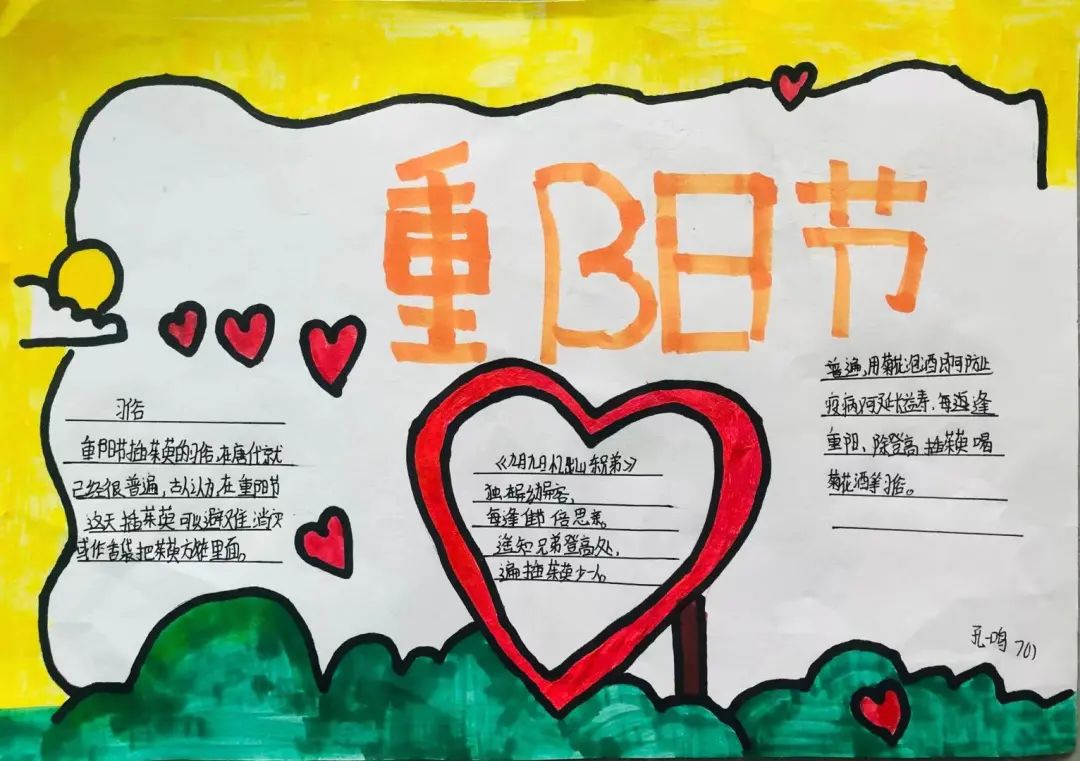 重阳节
习俗
重阳节插茱萸的习俗,在唐代就
已经很普遍,古人认为,在重阳节
这天插茱萸可以避难消灾
或作香袋把茱萸放在里面。
《九月九日忆山东兄弟》
独在异乡为异客,
每逢佳节倍思亲。
遥知兄弟登高处,
遍插茱萸少一人。
普遍,用菊花泡酒即可防止
疫病可延长益寿,每逢逢
重阳、除登高插茱萸喝
菊花酒等习俗。
孔一鸣 701